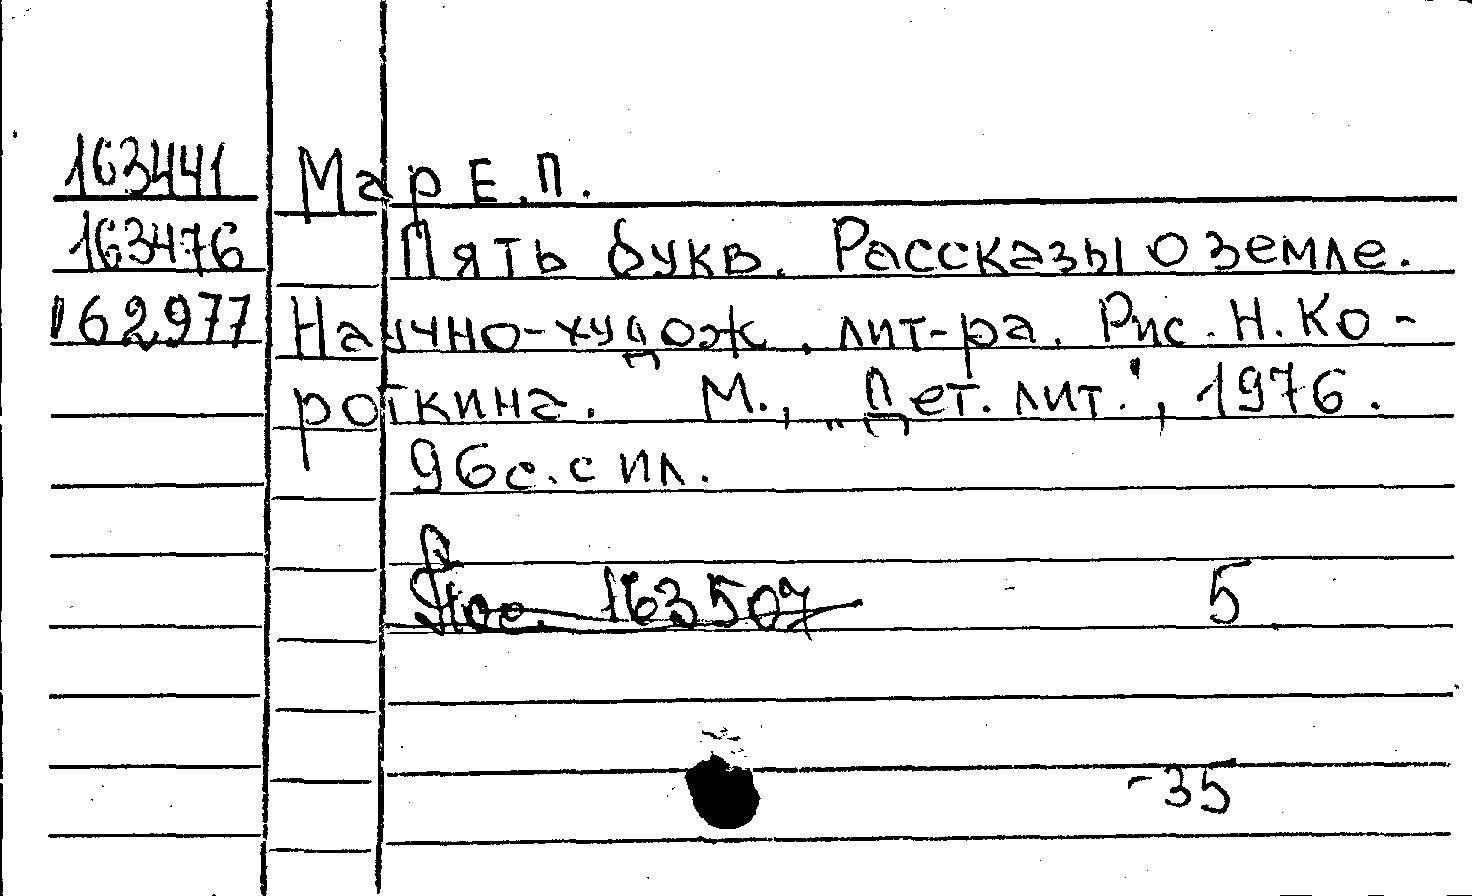 163441 Мар Е.П.
163476 Пять букв. Рассказы о земле.
162977 Научно-худож. лит-ра. Рис. Н. Ко-
роткина. М., „Дет. лит.", 1976.
96с. с ил.
163507 5
-35